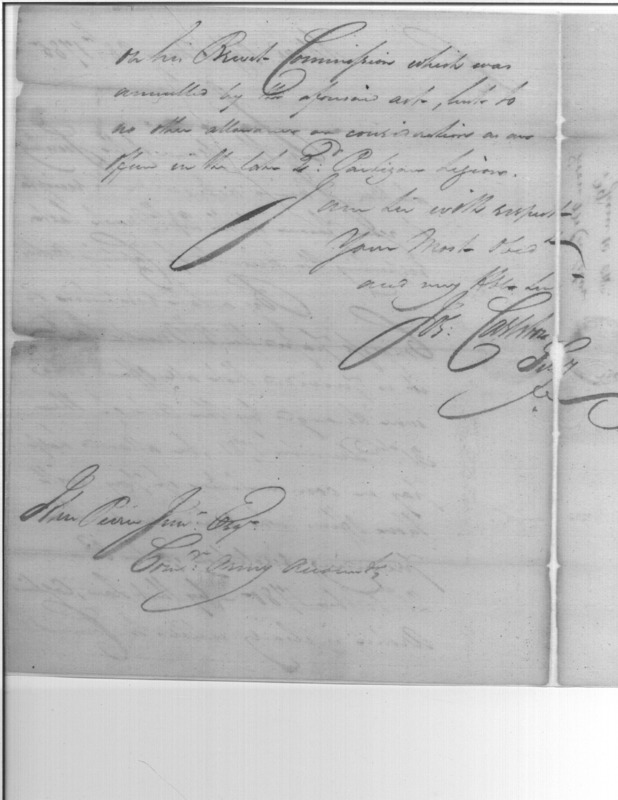 on his Brevet Commission which was
annulled by the aforesaid act, but to
no other allowance or consideration as an
officer in the late 2d. Partizan Legion.
I am Sir with respect
Your Most Obedt
and very Hble Ser
Jos: Carleton
Secy
John Pierce Junr. Esqr.
Comr. Army Accounts